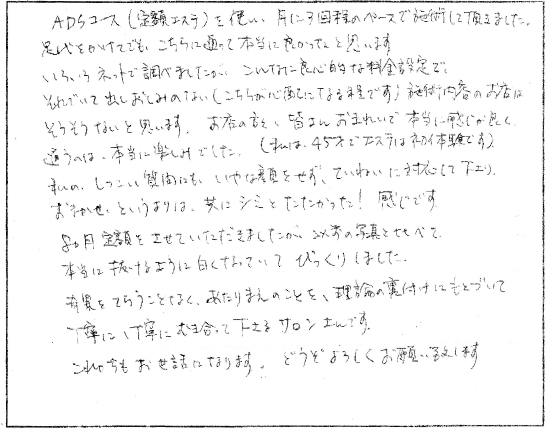 ADSコース(定額エステ)を使い、月に3回程のペースで施術して頂きました。
足代をかけてでも、こちらに通って本当に良かったと思います
いろいろネットで調べましたが、こんなに良心的な料金設定で、
それでいて出しおしみのない(こちらが心配になる程です)施術内容のお店は
そうそうないと思います。お店の方も、皆さんおきれいで本当に感じが良く、
通うのは、本当に楽しみでした。(私は、45才でエステは初体験です)
私の、しつこい質問にも、いやな顔をせず、ていねいに対応して下さり、
おまかせ、というよりは、共にシミとたたかった!感じです。
8ヵ月定額をさせていただきましたが、以前の写真と比べて、
本当に抜けるように白くなっていてびっくりしました。
奇異をてらうことなく、あたりまえのことを、理論の裏付けにもとづいて
丁寧に、丁寧に向き合って下さるサロンさんです。
これからもお世話になります。どうぞよろしくお願い致します